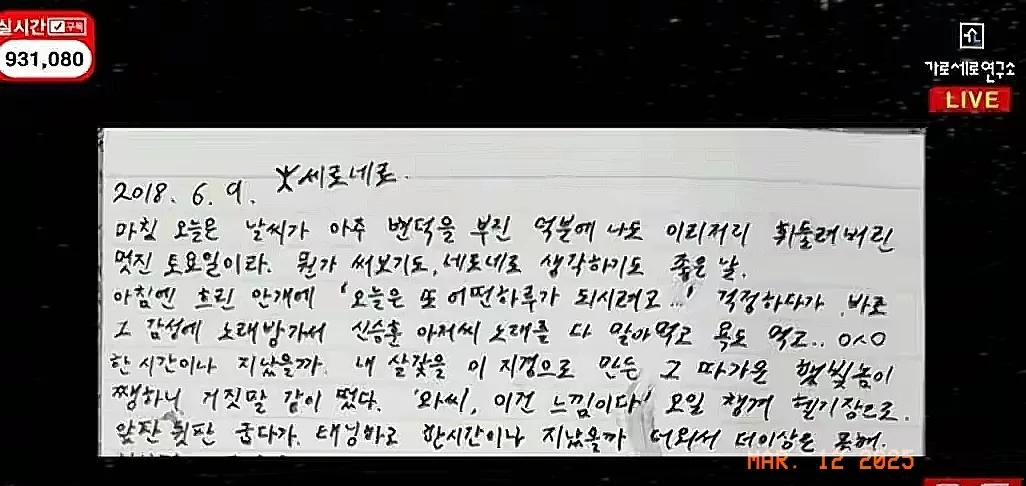 실시간 구독
931,080
가로세로연구소
LIVE
2018. 6. 9. 세로네로.
마침 오늘은 날씨가 아주 변덕을 부린 덕분에 나도 이리저리 휘둘려버린
멋진 토요일이라. 뭔가 써보기도, 세로네로 생각하기도 좋은 날.
아침엔 흐린 안개에 '오늘은 또 어떤하루가 되시려고...' 걱정하다가 바로
그 감성에 노래방가서 신승훈 아저씨 노래를 다 말아먹고 욕도 먹고.. 0ㅅ0
한 시간이나 지났을까. 내 살갗을 이 지경으로 만든 그 따가운 햇빛놈이
쨍하니 거짓말 같이 떴다. '와씨, 이건 느낌이다!' 오일 챙겨 헬기장으로.
앞판 뒷판 굽다가. 태닝하고 한시간이나 지났을까 더워서 더이상은 못해.
MAR. 12 2025